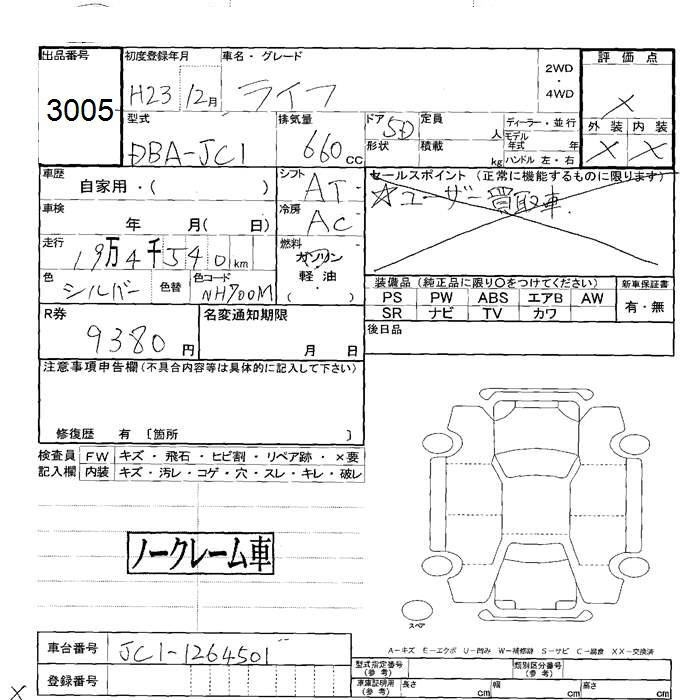 出品番号 初度登録年月 車名・グレード 2WD・4WD 評価点
3005 H23 12月 ライフ X
型式 排気量 ドア 定員 人 ディーラー・並行 外装 内装
DBA-JC1 660cc 5D 形状 積載 kg モデル年式 年 ハンドル 左・右 X X
車歴 シフト セールスポイント(正常に機能するものに限ります)
自家用・( ) AT ☆ユーザー買取車
車検 年 月( 日) 冷房 AC
走行 19万4千540km 燃料 ガソリン 軽油 ・( )
色 シルバー 色替 色コード NH700M
装備品(純正品に限り○をつけてください) 新車保証書
PS PW ABS エアB AW 有・無
SR ナビ TV カワ
R券 9380円 名変通知期限 月 日
後日品
注意事項申告欄(不具合内容等は具体的に記入して下さい)
修復歴 有 〔箇所 〕
検査員 FW キズ・飛石・ヒビ割・リペア跡・×要
記入欄 内装 キズ・汚レ・コゲ・穴・スレ・キレ・破レ
ノークレーム車
スペア
A-キズ E-エクボ U-凹み W-補修跡 S-サビ C-腐食 XX-交換済
車台番号 JC1-1264501
登録番号
型式指定番号(参考) 類別区分番号(参考)
車庫証明用(参考) 長さ cm 幅 cm 高さ cm
X